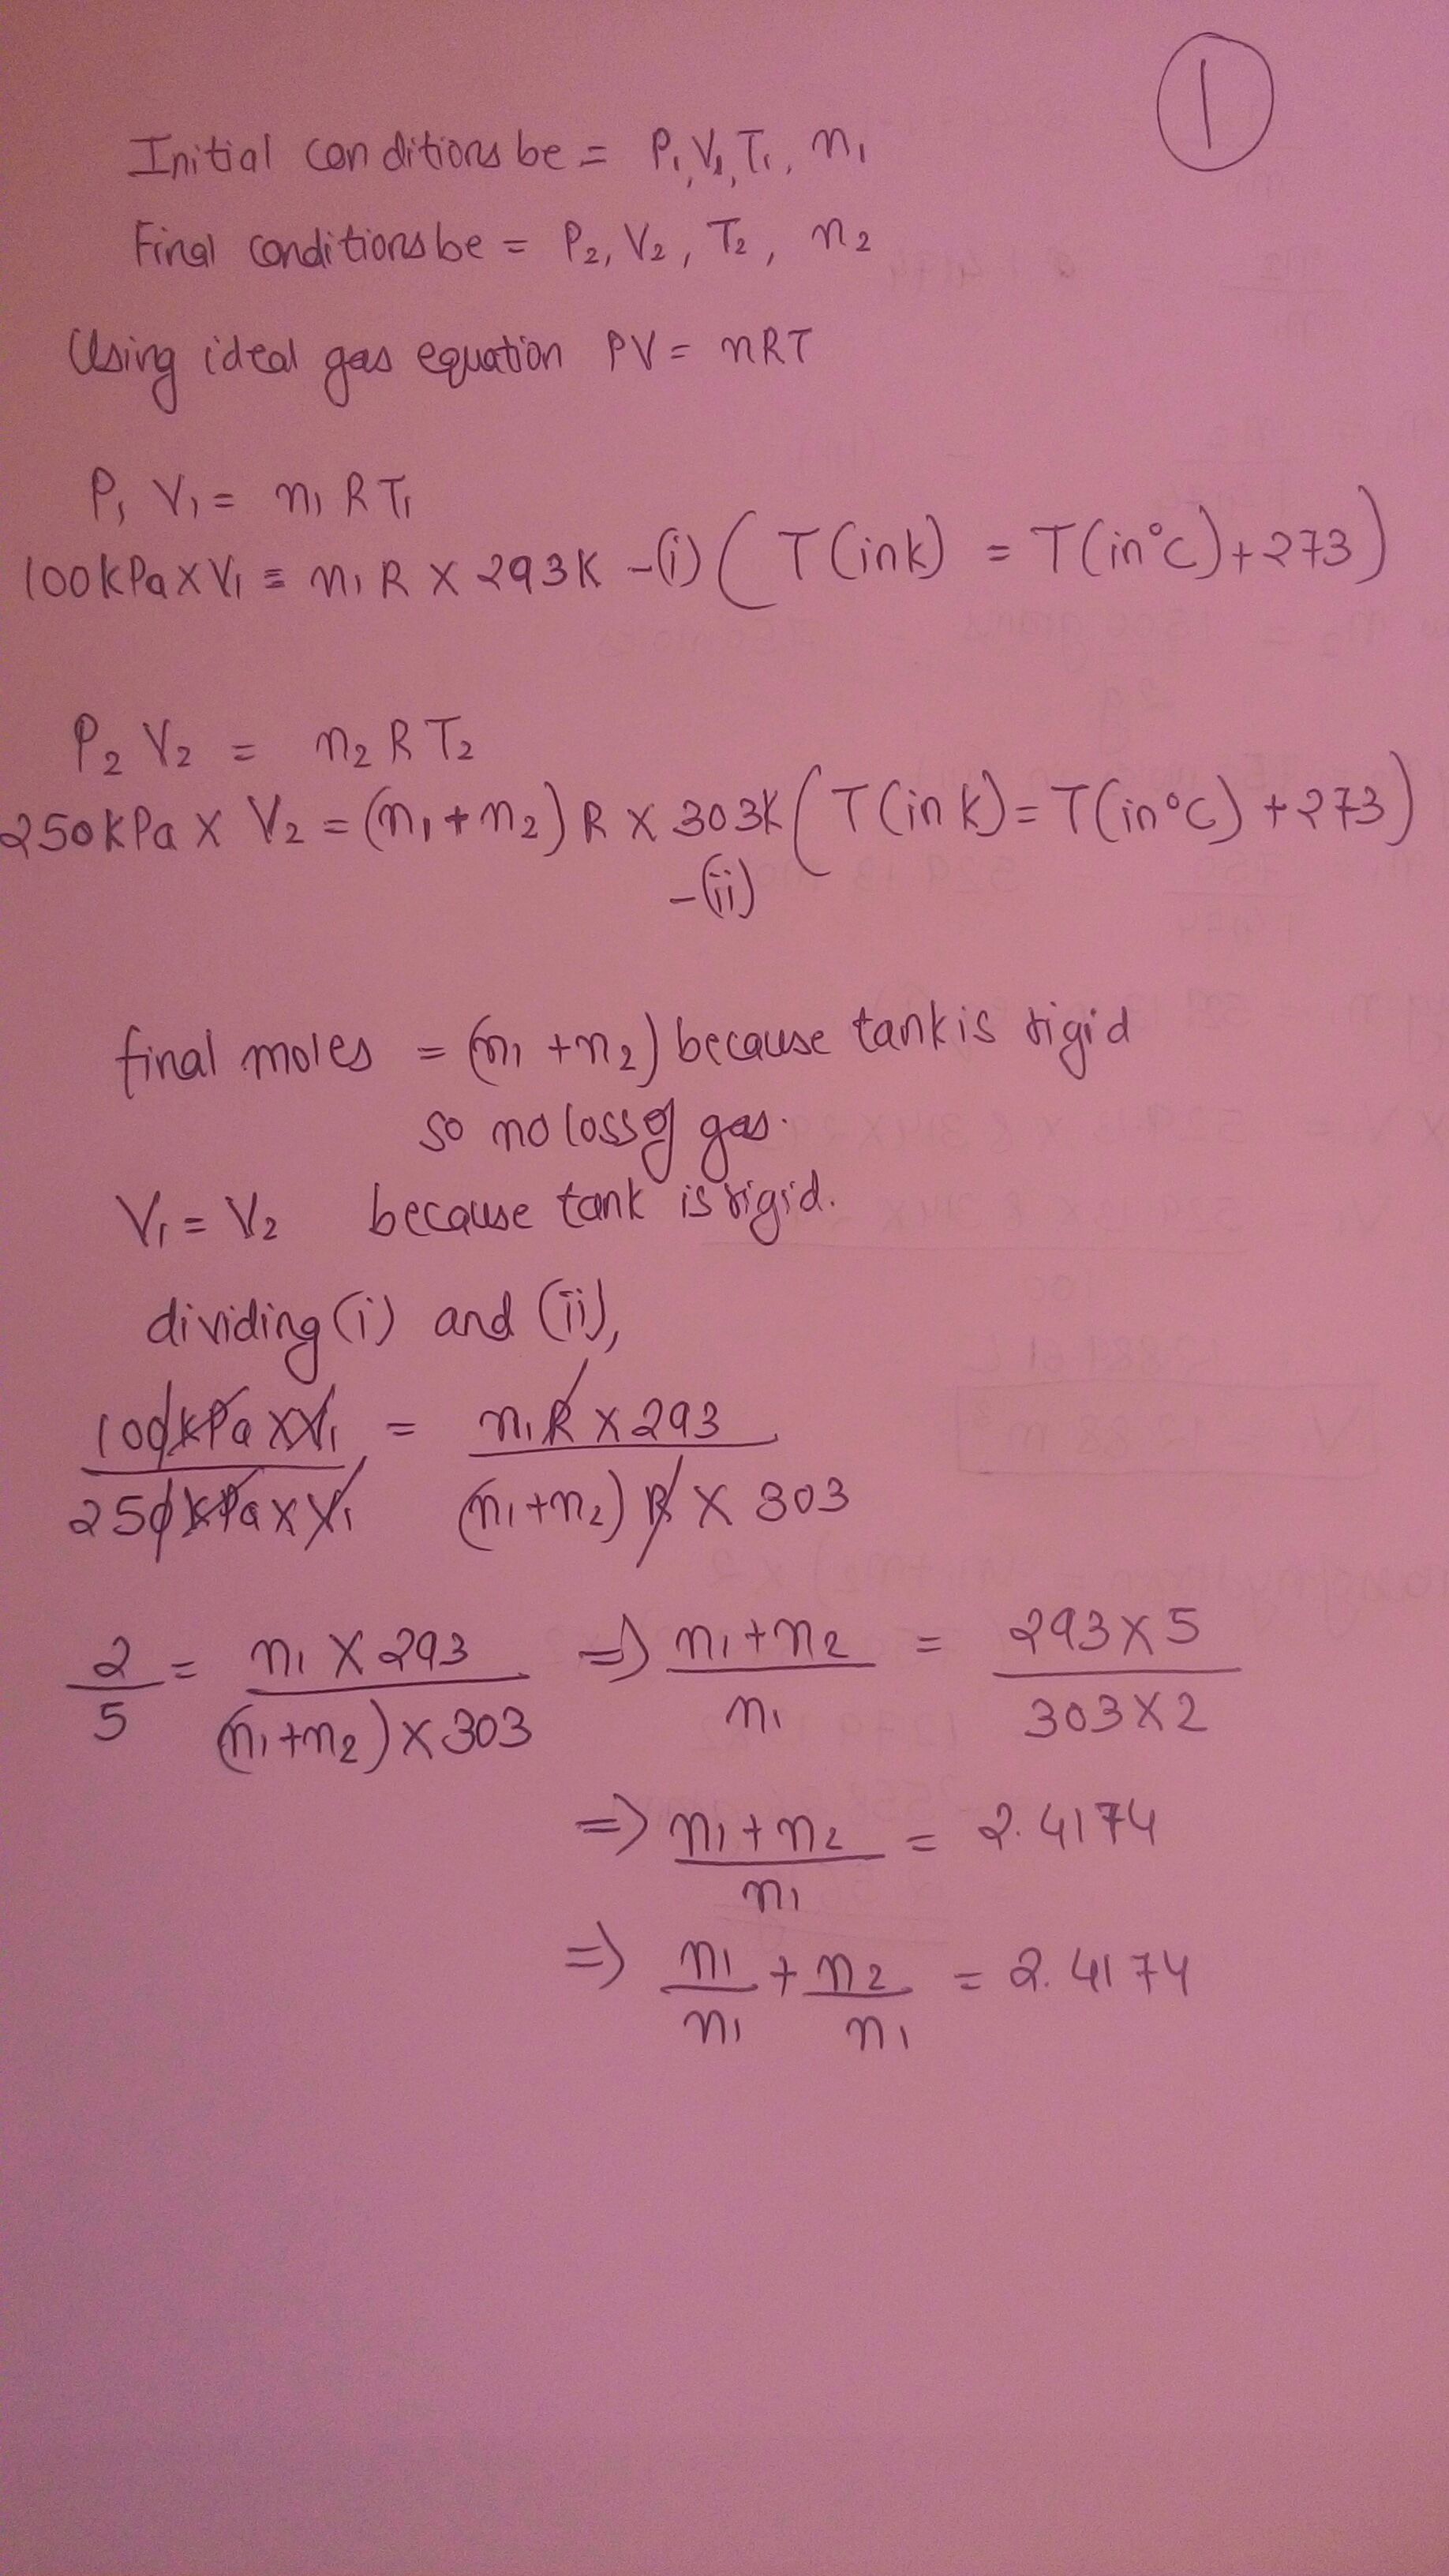 1
Initial conditions be = P1, V1, T1, n1
Final conditions be = P2, V2, T2, n2
Using ideal gas equation PV = nRT
P1 V1 = n1 RT1
100kPa x V1 = n1 R x 293K -(i) (T(in k) = T(in°C)+273)
P2 V2 = n2 RT2
250kPa x V2 = (n1+n2) R x 303K (T(in k) = T(in°C) +273)
-(ii)
final moles = (n1 +n2) because tank is rigid
so no loss of gas.
V1 = V2 because tank is rigid.
dividing (i) and (ii),
100kPa x V1 / 250kPa x V1 = n1R x 293 / (n1+n2) R x 303
2/5 = n1 x 293 / (n1+n2) x 303 => n1+n2 / n1 = 293x5 / 303x2
=> n1+n2 / n1 = 2.4174
=> n1/n1 + n2/n1 = 2.4174